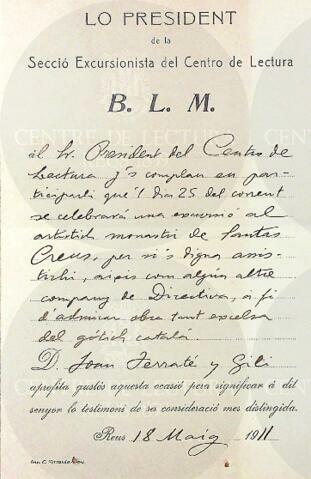 LO PRESIDENT
de la
Secció Excursionista del Centro de Lectura
B. L. M.
al Sr. President del Centro de
Lectura y's complau en par-
ticiparli que'l dia 25 del corrent
se celebrará una excursió al
artístich monastir de Santas
Creus, per si's digna assis-
tirhi, aixís com algún altre
company de Directiva, a fi
d'admirar obra tant excelsa
del gótich catalá.
D. Joan Ferraté y Gili
aprofita gustós aquesta ocasió pera significar á dit
senyor lo testimoni de sa consideració mes distingida.
Reus 18 Maig 1911
CENTRE DE LECTURA